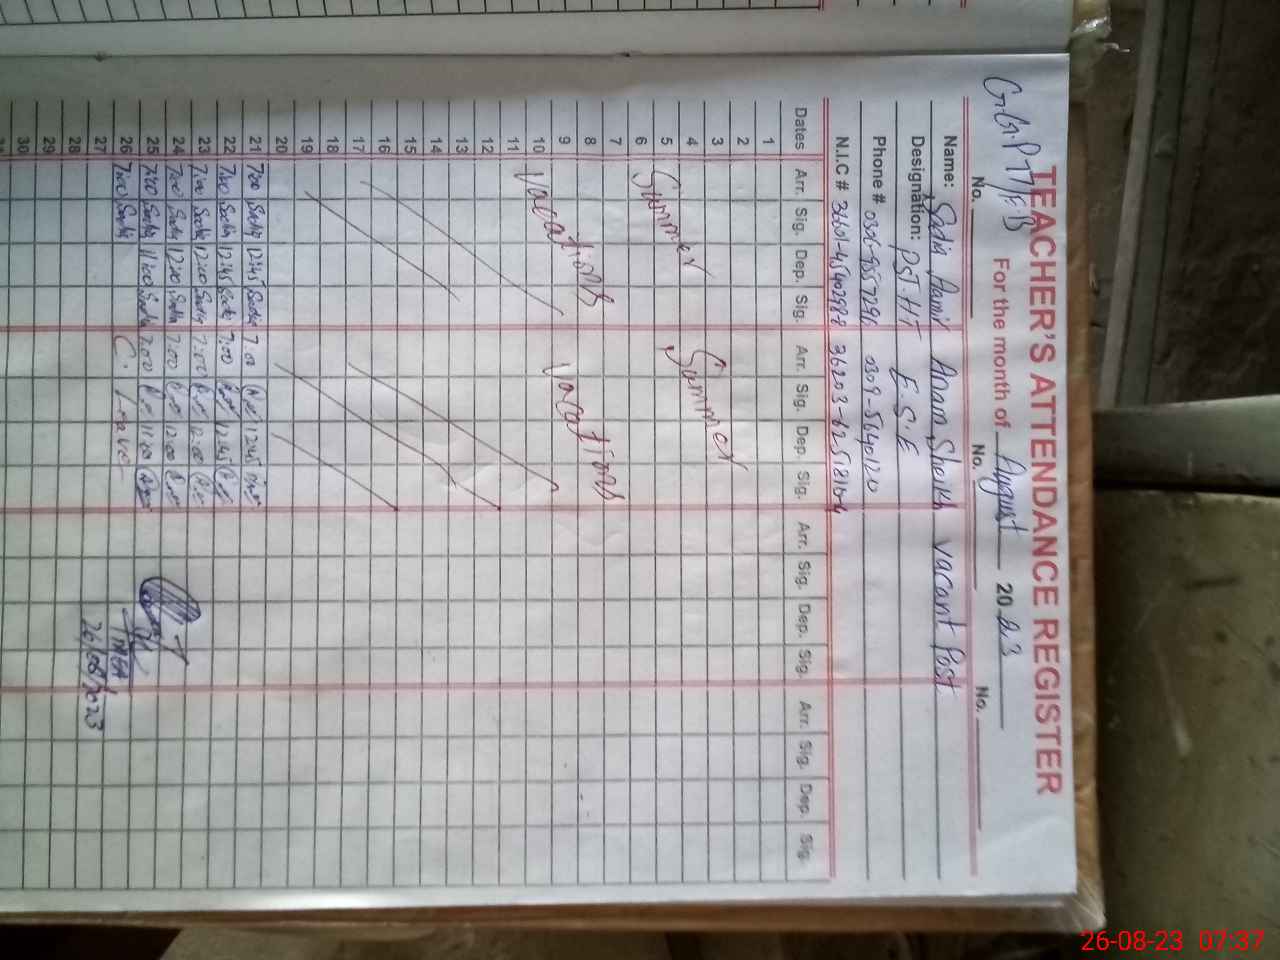 TEACHER'S ATTENDANCE REGISTER
For the month of August 2023
No. No. No.
Name: Sadia Anam Sheikh vacant Post
Designation: PST. HT E.S.E
Phone # 0309-5640120
N.I.C #
Dates Arr. Sig. Dep. Sig. Arr. Sig. Dep. Sig. Arr. Sig. Dep. Sig. Arr. Sig. Dep. Sig.
1
2
3
4
5 Summer Summer
6
7
8
9
10 Vacations Vacations
11
12
13
14
15
16
17
18
19
20
21 7:00 Sadia 12:45 Sadia 7:00 12:45
22 7:00 Sadia 12:45 Sadia 7:00 12:45
23 7:00 Sadia 12:00 Sadia 7:00 12:00
24 7:00 Sadia 12:00 Sadia 7:00 12:00
25 7:00 Sadia 11:00 Sadia 7:00 11:00
26 7:00 Sadia C. Leave
27
28
29
30
26/08/2023
26-08-23 07:37